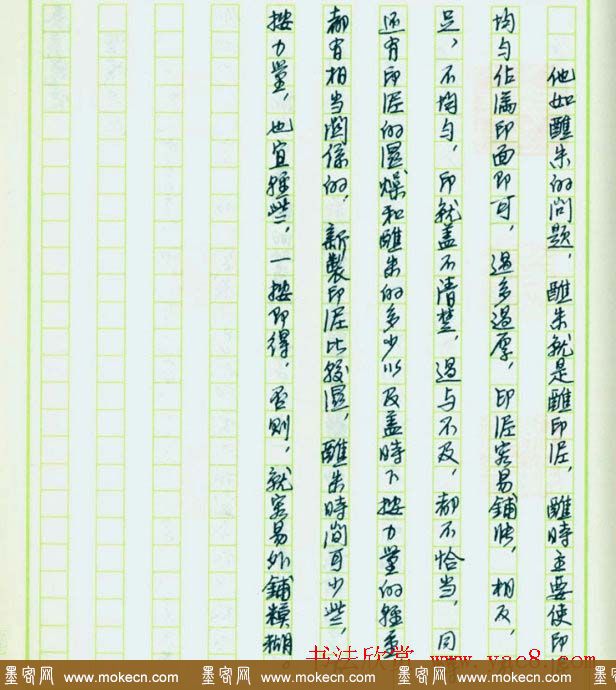 他如醮朱的问题，醮朱就是醮印泥，醮时主要使印
均匀佔满印面即可，过多过厚，印泥容易铺张，相反，
足，不均匀，印就盖不清楚，过与不及，都不恰当，同
还有印泥的湿燥和醮朱的多少以及盖时下按力量的轻重
都有相当関係的，新製印泥比较湿，醮朱时间可少些，
按力量，也宜轻些，一按即得，否则，就容易外铺模糊。
书法欣赏 www.yac8.com
墨客网 www.mokecn.com 墨客网 www.mokecn.com 墨客网 www.mokecn.com